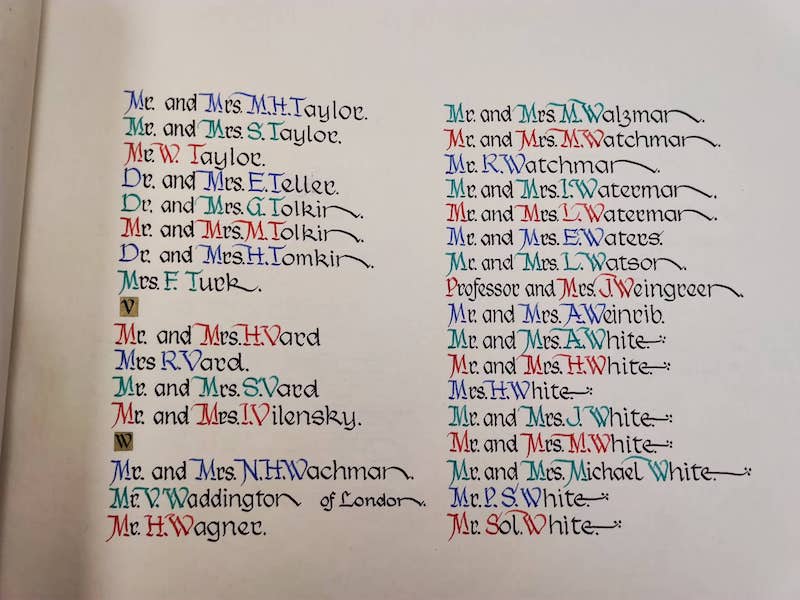 Mr. and Mrs. M.H. Taylor.
Mr. and Mrs. S. Taylor.
Mr. W. Taylor.
Dr. and Mrs. E. Teller.
Dr. and Mrs. G. Tolkin.
Mr. and Mrs. M. Tolkin.
Dr. and Mrs. H. Tomkin.
Mrs. F. Turk.
V
Mr. and Mrs. H. Vard
Mrs R. Vard.
Mr. and Mrs. S. Vard
Mr. and Mrs. I. Vilensky.
W
Mr. and Mrs. N.H. Wachman.
Mr. V. Waddington of London.
Mr. H. Wagner.
Mr. and Mrs. M. Walzman.
Mr. and Mrs. M. Watchman.
Mr. R. Watchman.
Mr. and Mrs. I. Waterman.
Mr. and Mrs. L. Waterman.
Mr. and Mrs. E. Waters.
Mr. and Mrs. L. Watson.
Professor and Mrs. J. Weingreen.
Mr. and Mrs. A. Weinrib.
Mr. and Mrs. A. White
Mr. and Mrs. H. White
Mrs. H. White
Mr. and Mrs. J. White
Mr. and Mrs. M. White
Mr. and Mrs. Michael White.
Mr. P. S. White
Mr. Sol. White